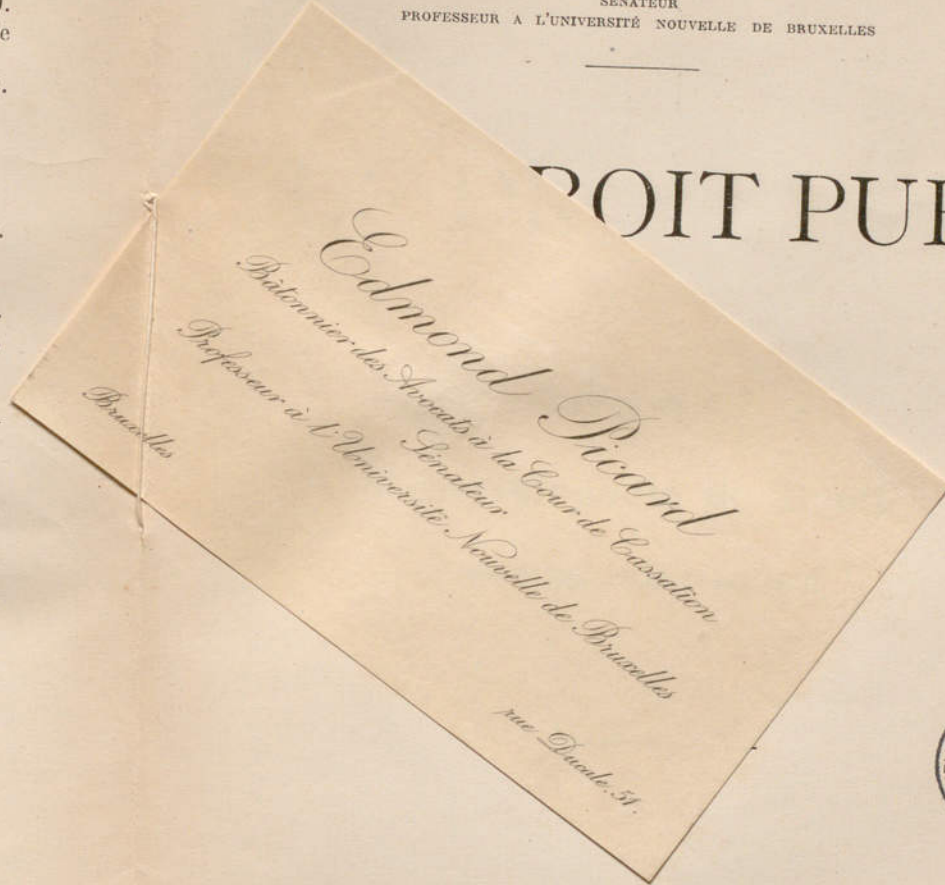 SÉNATEUR
PROFESSEUR A L'UNIVERSITÉ NOUVELLE DE BRUXELLES
ROIT PU
Edmond Picard
Bâtonnier des Avocats à la Cour de Cassation
Sénateur
Professeur à l'Université Nouvelle de Bruxelles
Bruxelles
rue Ducale. 51.